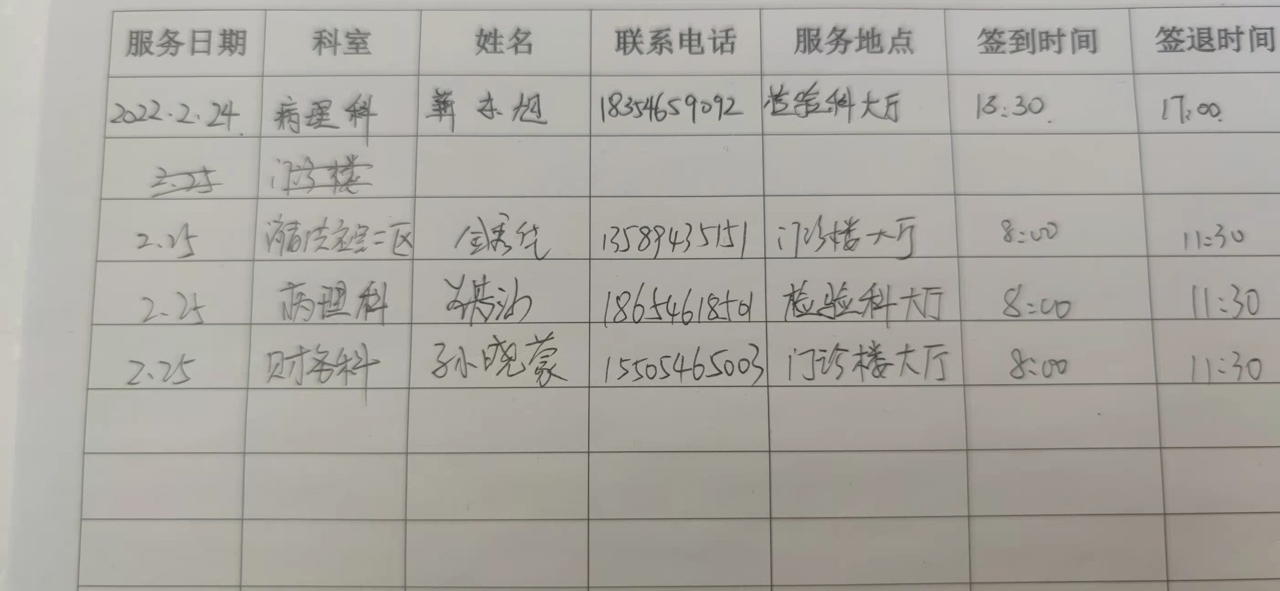 服务日期 科室 姓名 联系电话 服务地点 签到时间 签退时间
2022.2.24. 病理科 靳东旭 18354659092 检验科大厅 13:30. 17:00.
2.25 门诊楼
2.25 二区 13589435151 门诊楼大厅 8:00 11:30
2.25 病理科 18654618501 检验科大厅 8:00 11:30
2.25 财务科 孙晓蒙 15505465003 门诊楼大厅 8:00 11:30